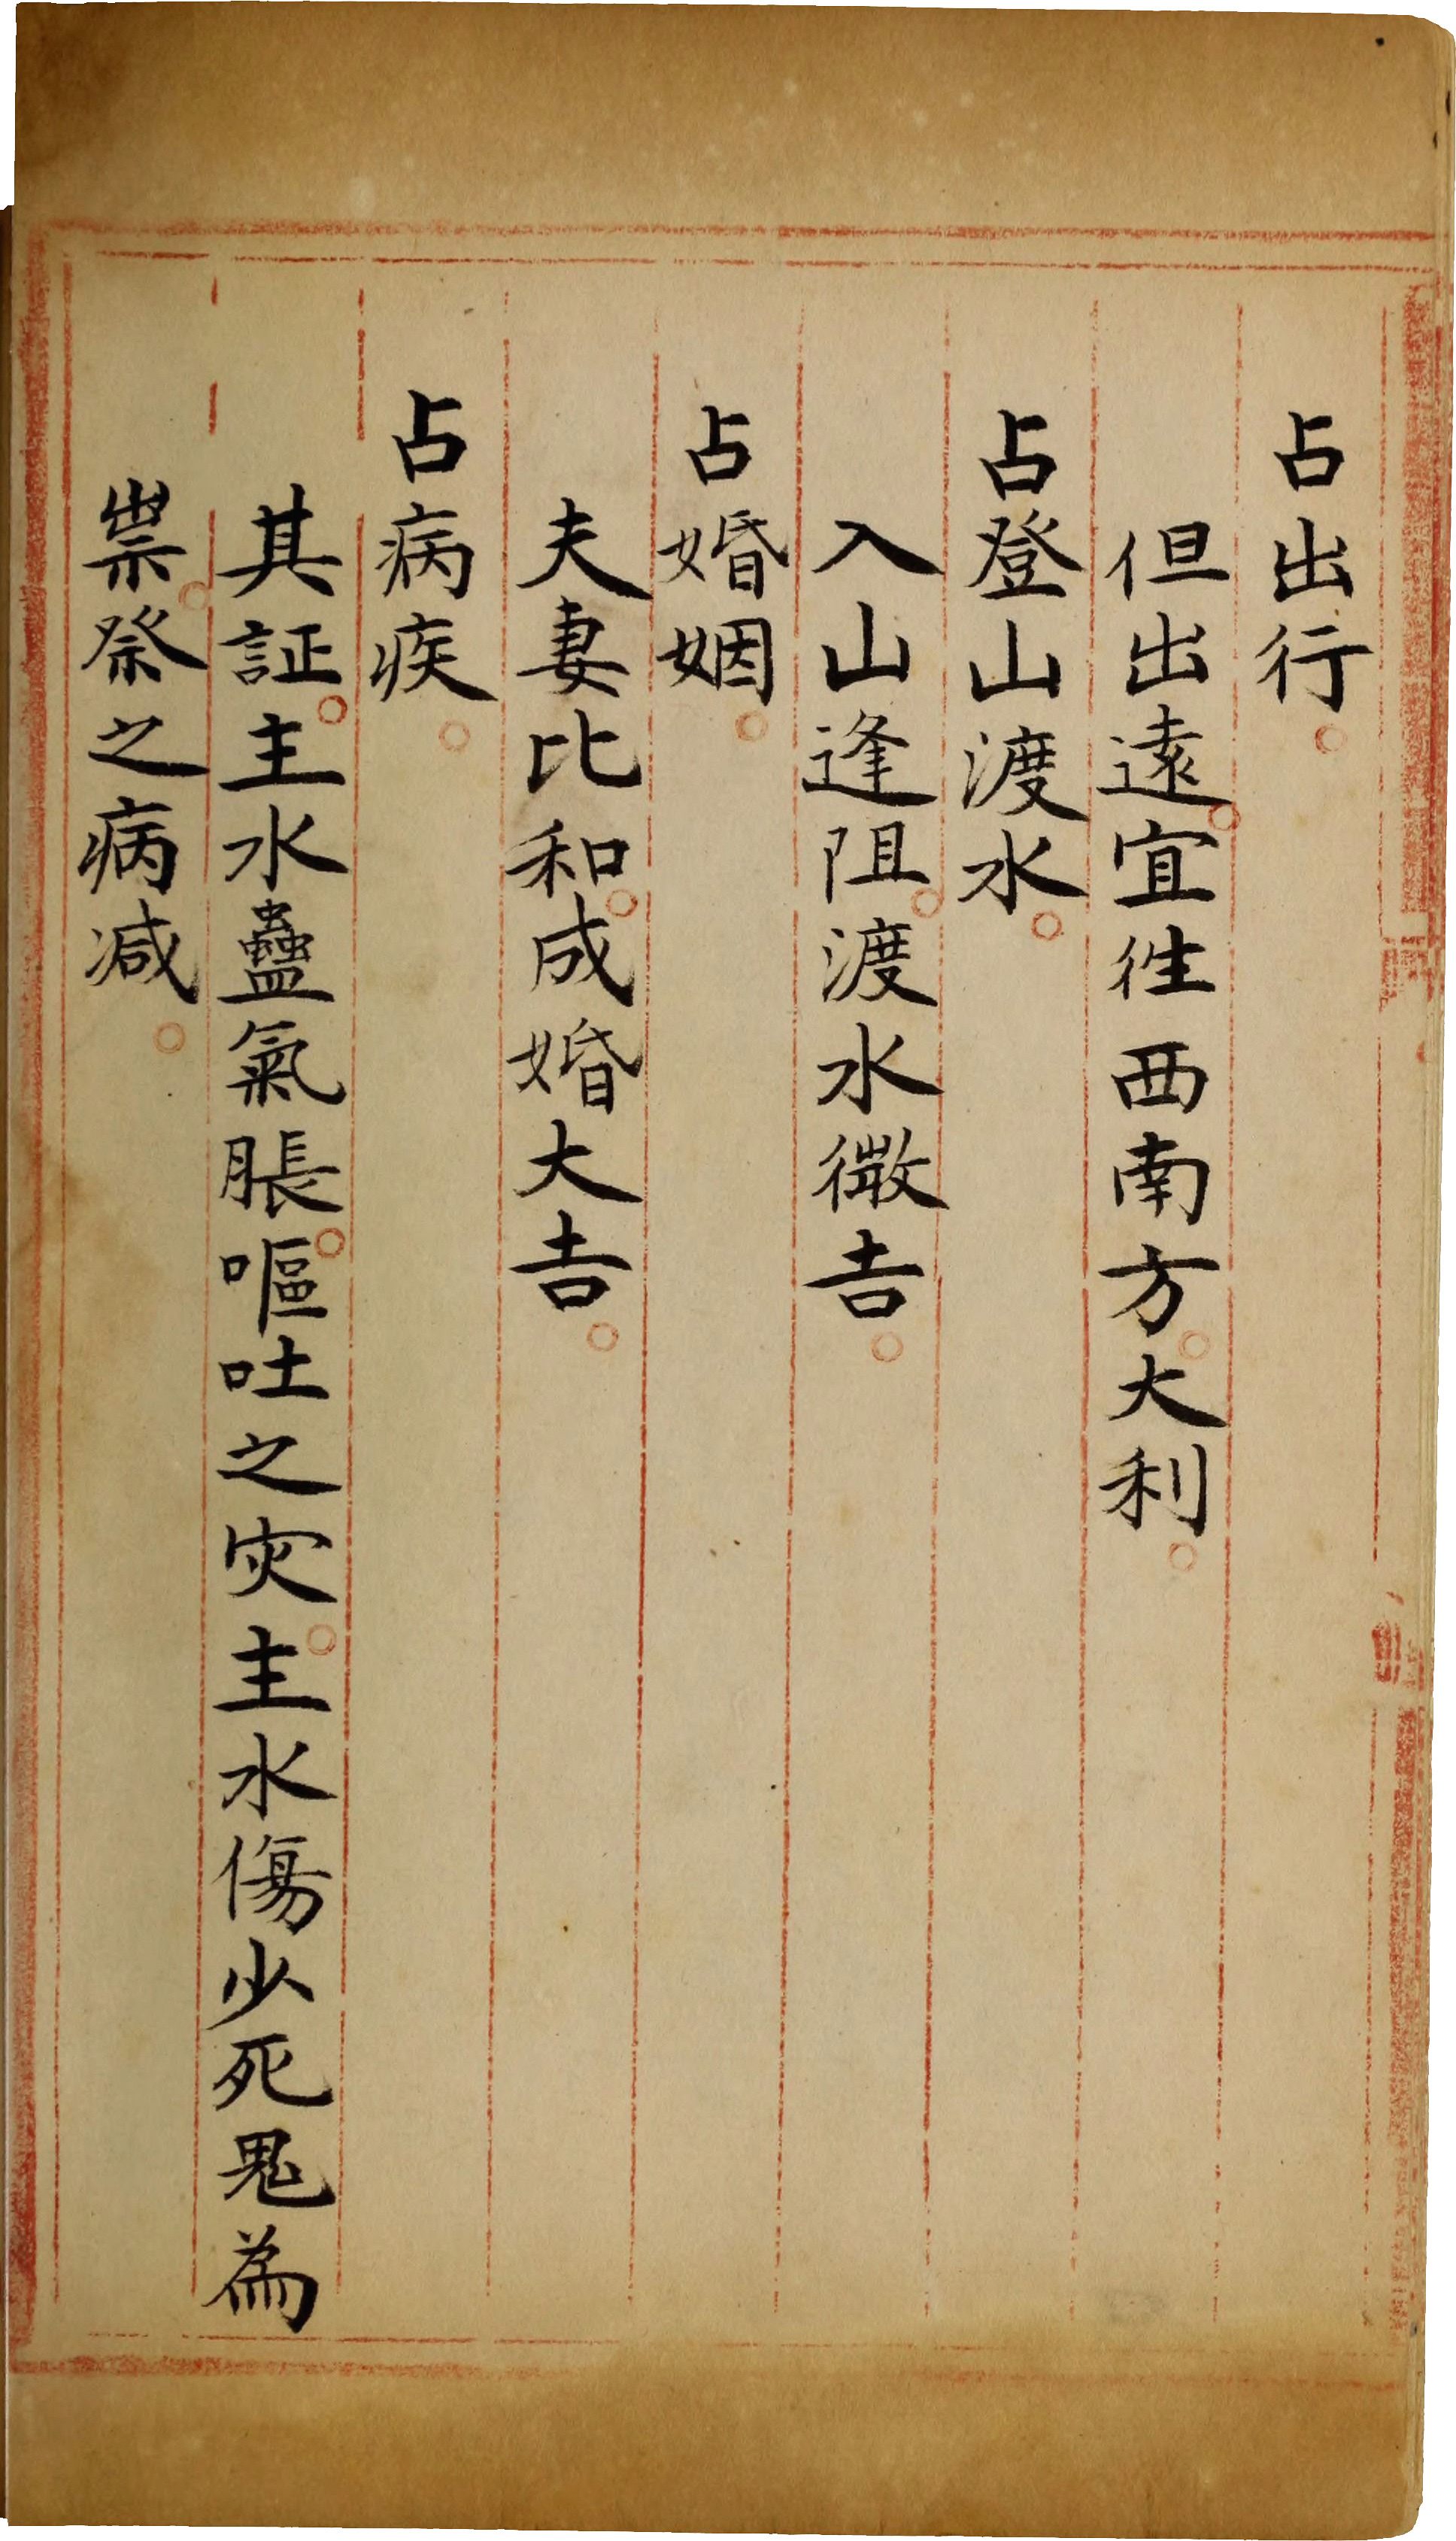 占出行
但出遠宜徃西南方大利
占登山渡水
入山逢阻渡水微吉
占婚姻
夫妻比和成婚大吉
占病疾
其証主水蠱氣脹嘔吐之灾主水傷少死鬼為
祟祭之病减